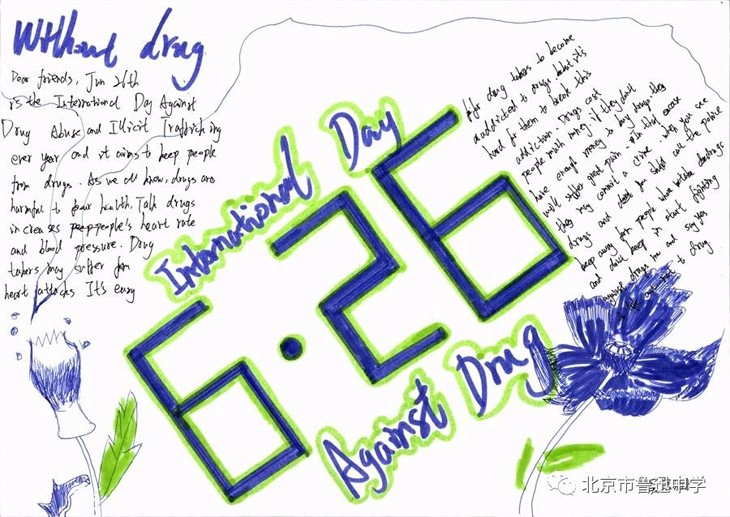 Without drug
Dear friends, Jun 26th
is the International Day Against
Drug Abuse and Illicit Trafdrich ing
ever year and it aims to keep people
from drugs. As we all know, drugs are
harmful to your health. Talk drugs
increases people's heart rate
and blood pressure. Drug
takers may suffer from
heart attacks It's easy
International Day
6·26
Against Drug
for drug takers to become
addicted to drugs, but it's
hard for them to break this
addiction Drugs cost
people much money. if they don't
have enough money to buy drugs they
will suffer great pain. With that excuse
they may commit a crime. When you see
drugs and should call the police
keep away for people who
and don't keep in start fighting
against drugs and say you
to drug
北京市鲁迅中学